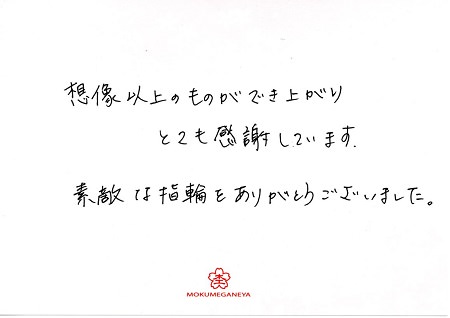 想像以上のものができ上がり
とても感謝しています.
素敵な指輪をありがとうございました。
MOKUMEGANEYA